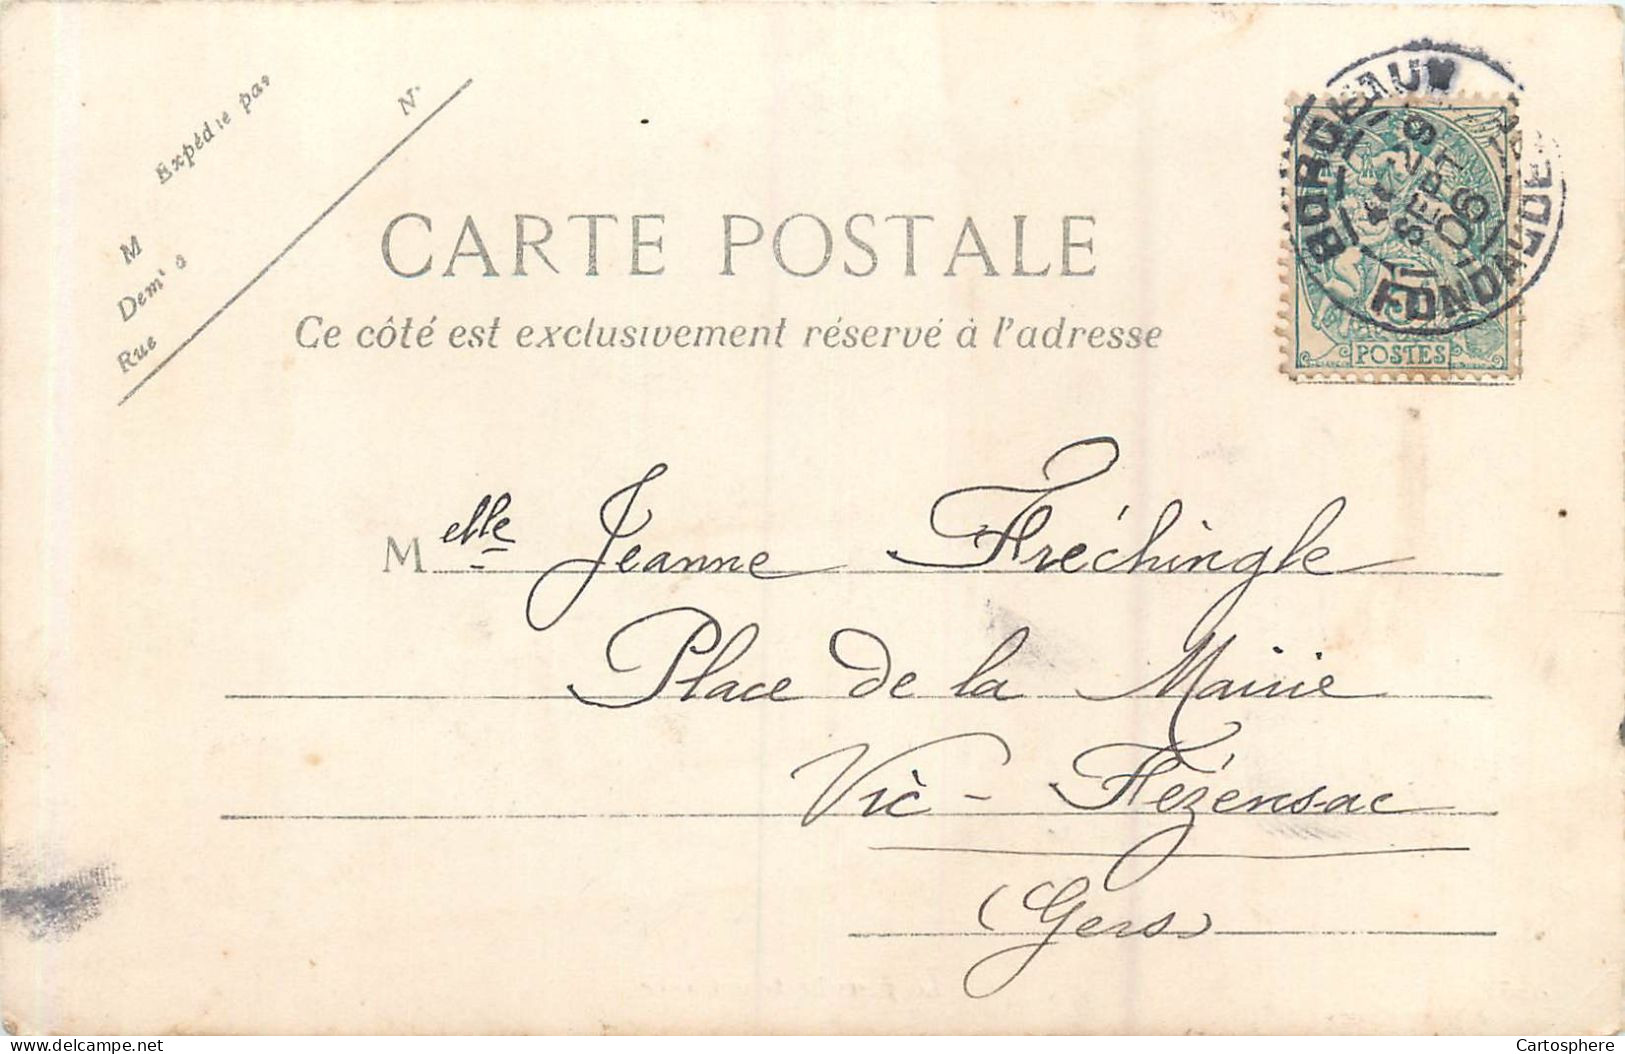 Expédié par
M
Demt à
Rue
N°
CARTE POSTALE
Ce côté est exclusivement réservé à l'adresse
BORDEAUX
SEPT
06
POSTES
Melle Jeanne Fréchingle
Place de la Mairie
Vic-Fézensac
(Gers)
delcampe.net
Cartosphere